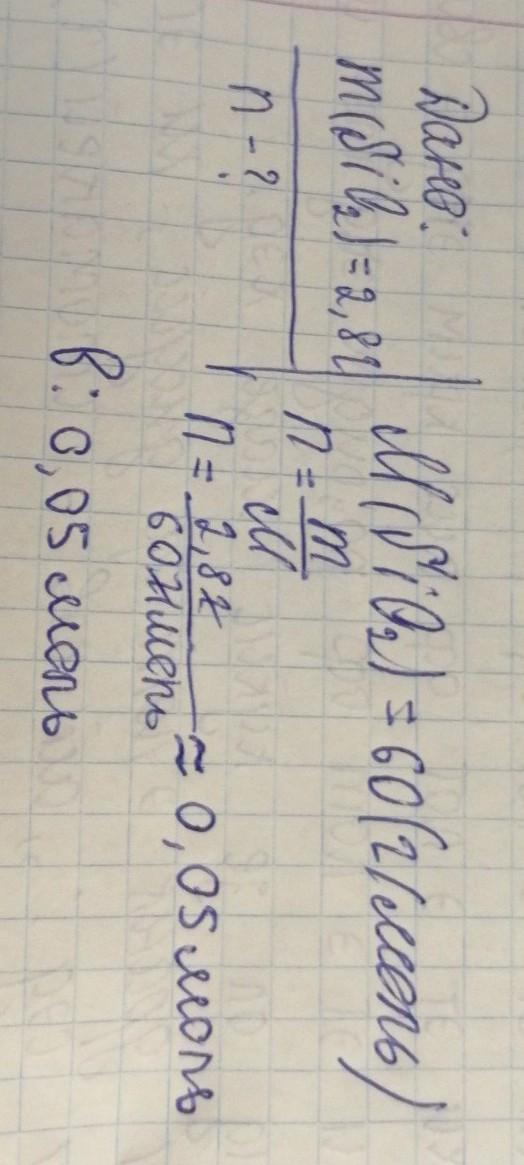 Дано:
m(SiO₂)=2,8г
n-?
M(SiO₂)=60(г/моль)
n = m/M
n = 2,8г/60г/моль ≈ 0,05 моль
В: 0,05 моль